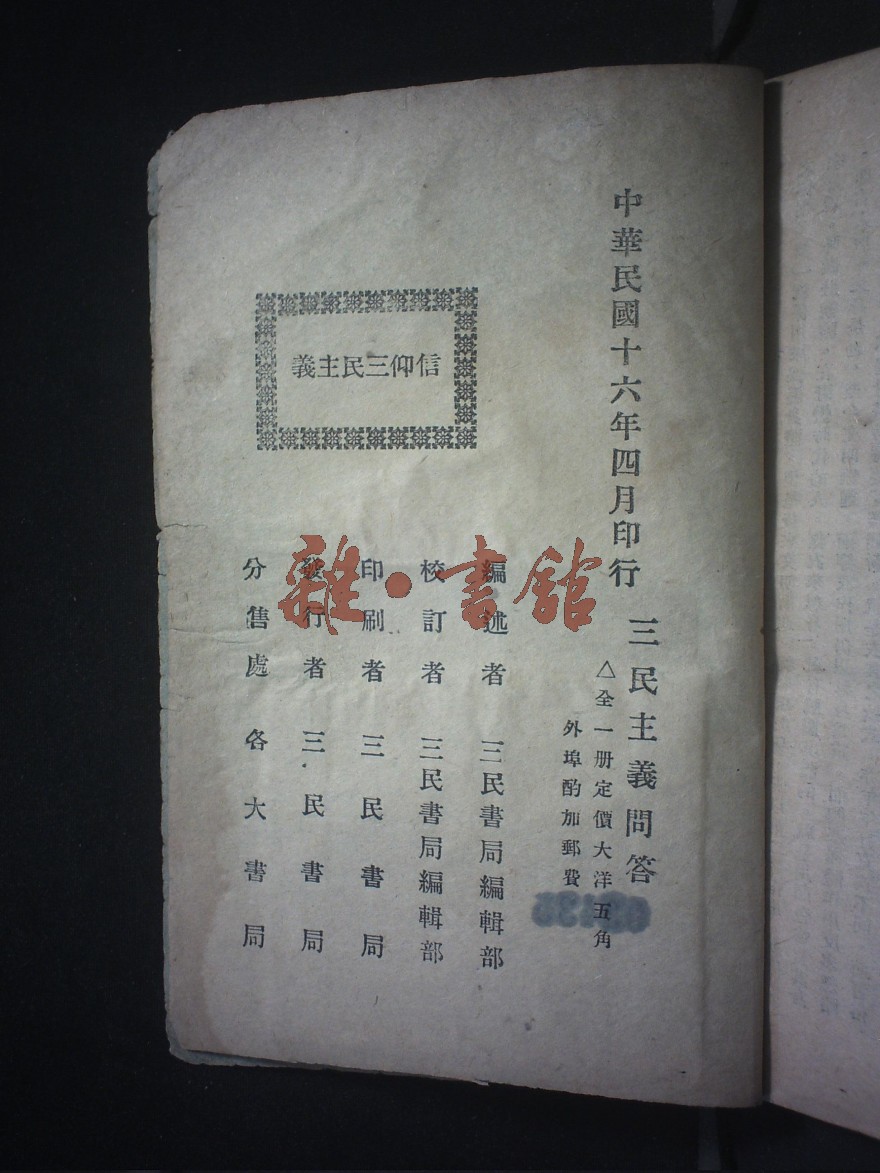 中華民國十六年四月印行
三民主義問答
△全一册定價大洋五角
外埠酌加郵費
信仰三民主義
編述者 三民書局編輯部
校訂者 三民書局編輯部
印刷者 三民書局
發行者 三民書局
分售處 各大書局
雜·書館